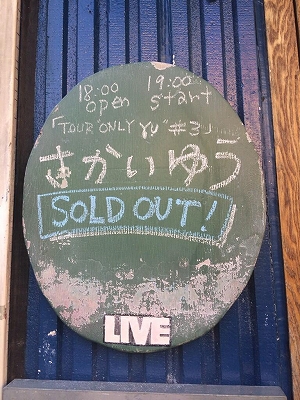 18:00 19:00
open start
「TOUR "ONLY YU" #3」
さかいゆう
SOLD OUT!
LIVE